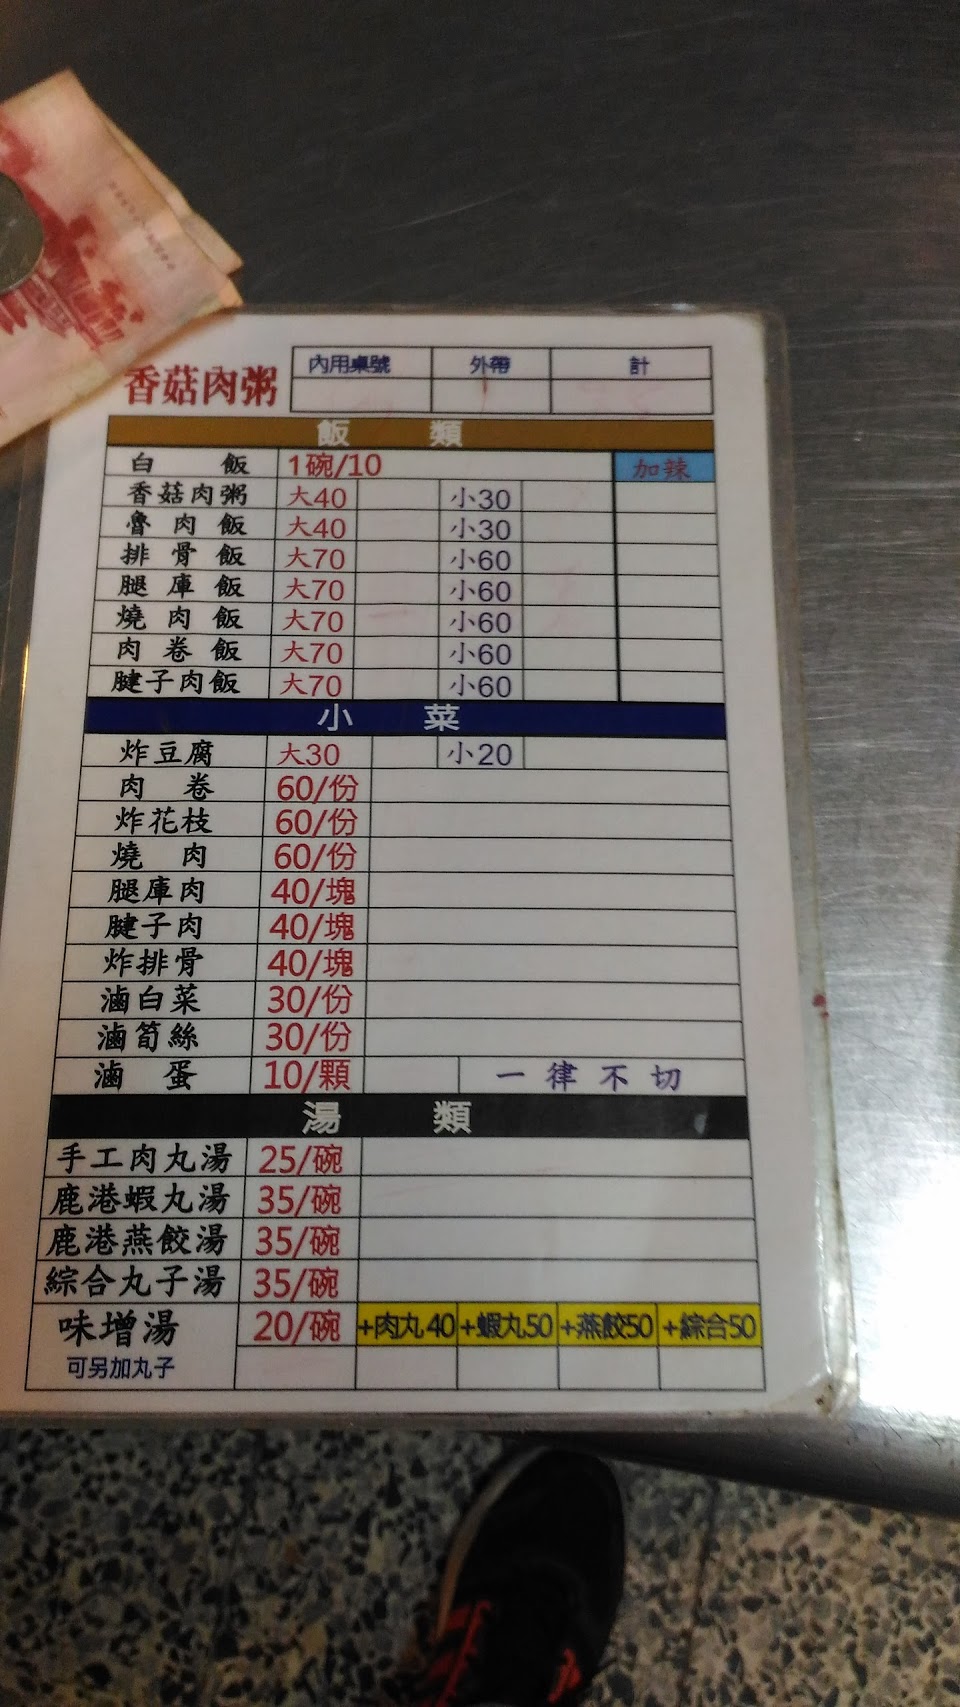 香菇肉粥 內用桌號 外帶 計
飯 類
白 飯 1碗/10 加辣
香菇肉粥 大40 小30
魯肉飯 大40 小30
排骨飯 大70 小60
腿庫飯 大70 小60
燒肉飯 大70 小60
肉卷飯 大70 小60
腱子肉飯 大70 小60
小 菜
炸豆腐 大30 小20
肉 卷 60/份
炸花枝 60/份
燒 肉 60/份
腿庫肉 40/塊
腱子肉 40/塊
炸排骨 40/塊
滷白菜 30/份
滷筍絲 30/份
滷 蛋 10/顆 一律不切
湯 類
手工肉丸湯 25/碗
鹿港蝦丸湯 35/碗
鹿港燕餃湯 35/碗
綜合丸子湯 35/碗
味增湯 20/碗 +肉丸40 +蝦丸50 +燕餃50 +綜合50
可另加丸子